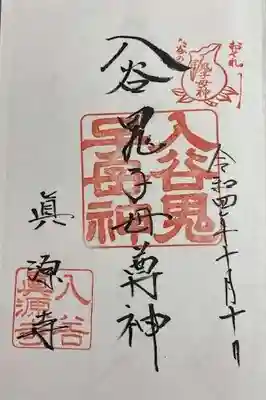 おそれ
入谷の
鬼子母神
令和四年十月十日
入谷
鬼子母尊神
入谷鬼
子母神
眞源寺
入谷
眞源寺